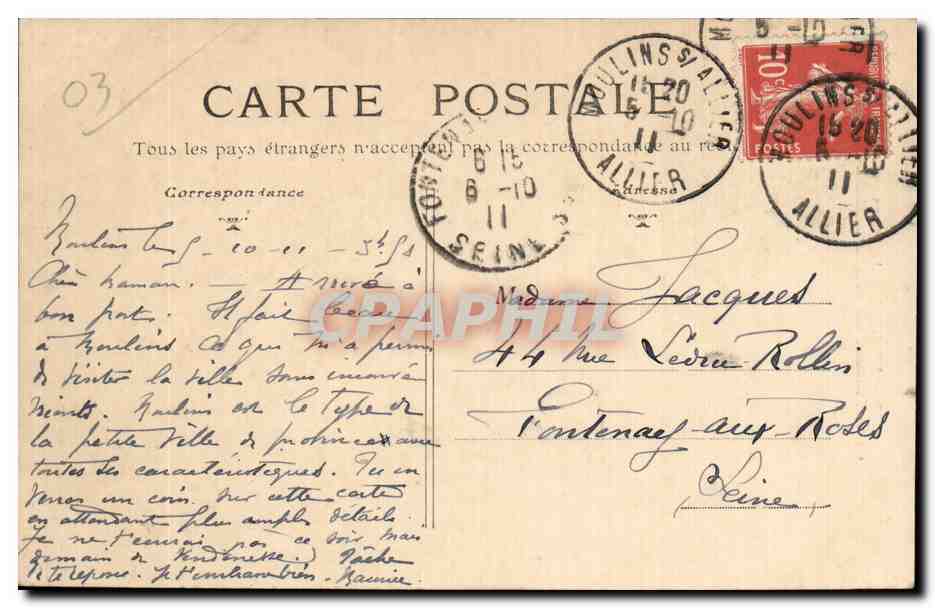 03
CARTE POSTALE
Tous les pays étrangers n'acceptent pas la correspondance au
Correspondance
Adresse
MOULINS S/ ALLIER
15 20
5 -10
11
ALLIER
MOULINS S/ ALLIER
15 20
5 -10
11
ALLIER
5 -10
11
10c
POSTES
FONTENAY
6 15
6 -10
11
SEINE
Moulins le 5 - 10 - 11 -
Chère maman. - Arrivé à
bon port. Il fait beau
à Moulins ce qui m'a permis
de visiter la ville sans inconvé
nients. Moulins est le type de
la petite ville de province avec
toutes ses caractéristiques. Tu en
verras un coin sur cette carte
en attendant plus amples détails.
Je ne t'écrirai pas ce soir mais
demain de Vendenesse. Tâche
de te reposer. Je t'embrasse bien. Maurice
Madame Jacques
44 Rue Ledru-Rollin
Fontenay-aux-Roses
Seine
CPAPHIL